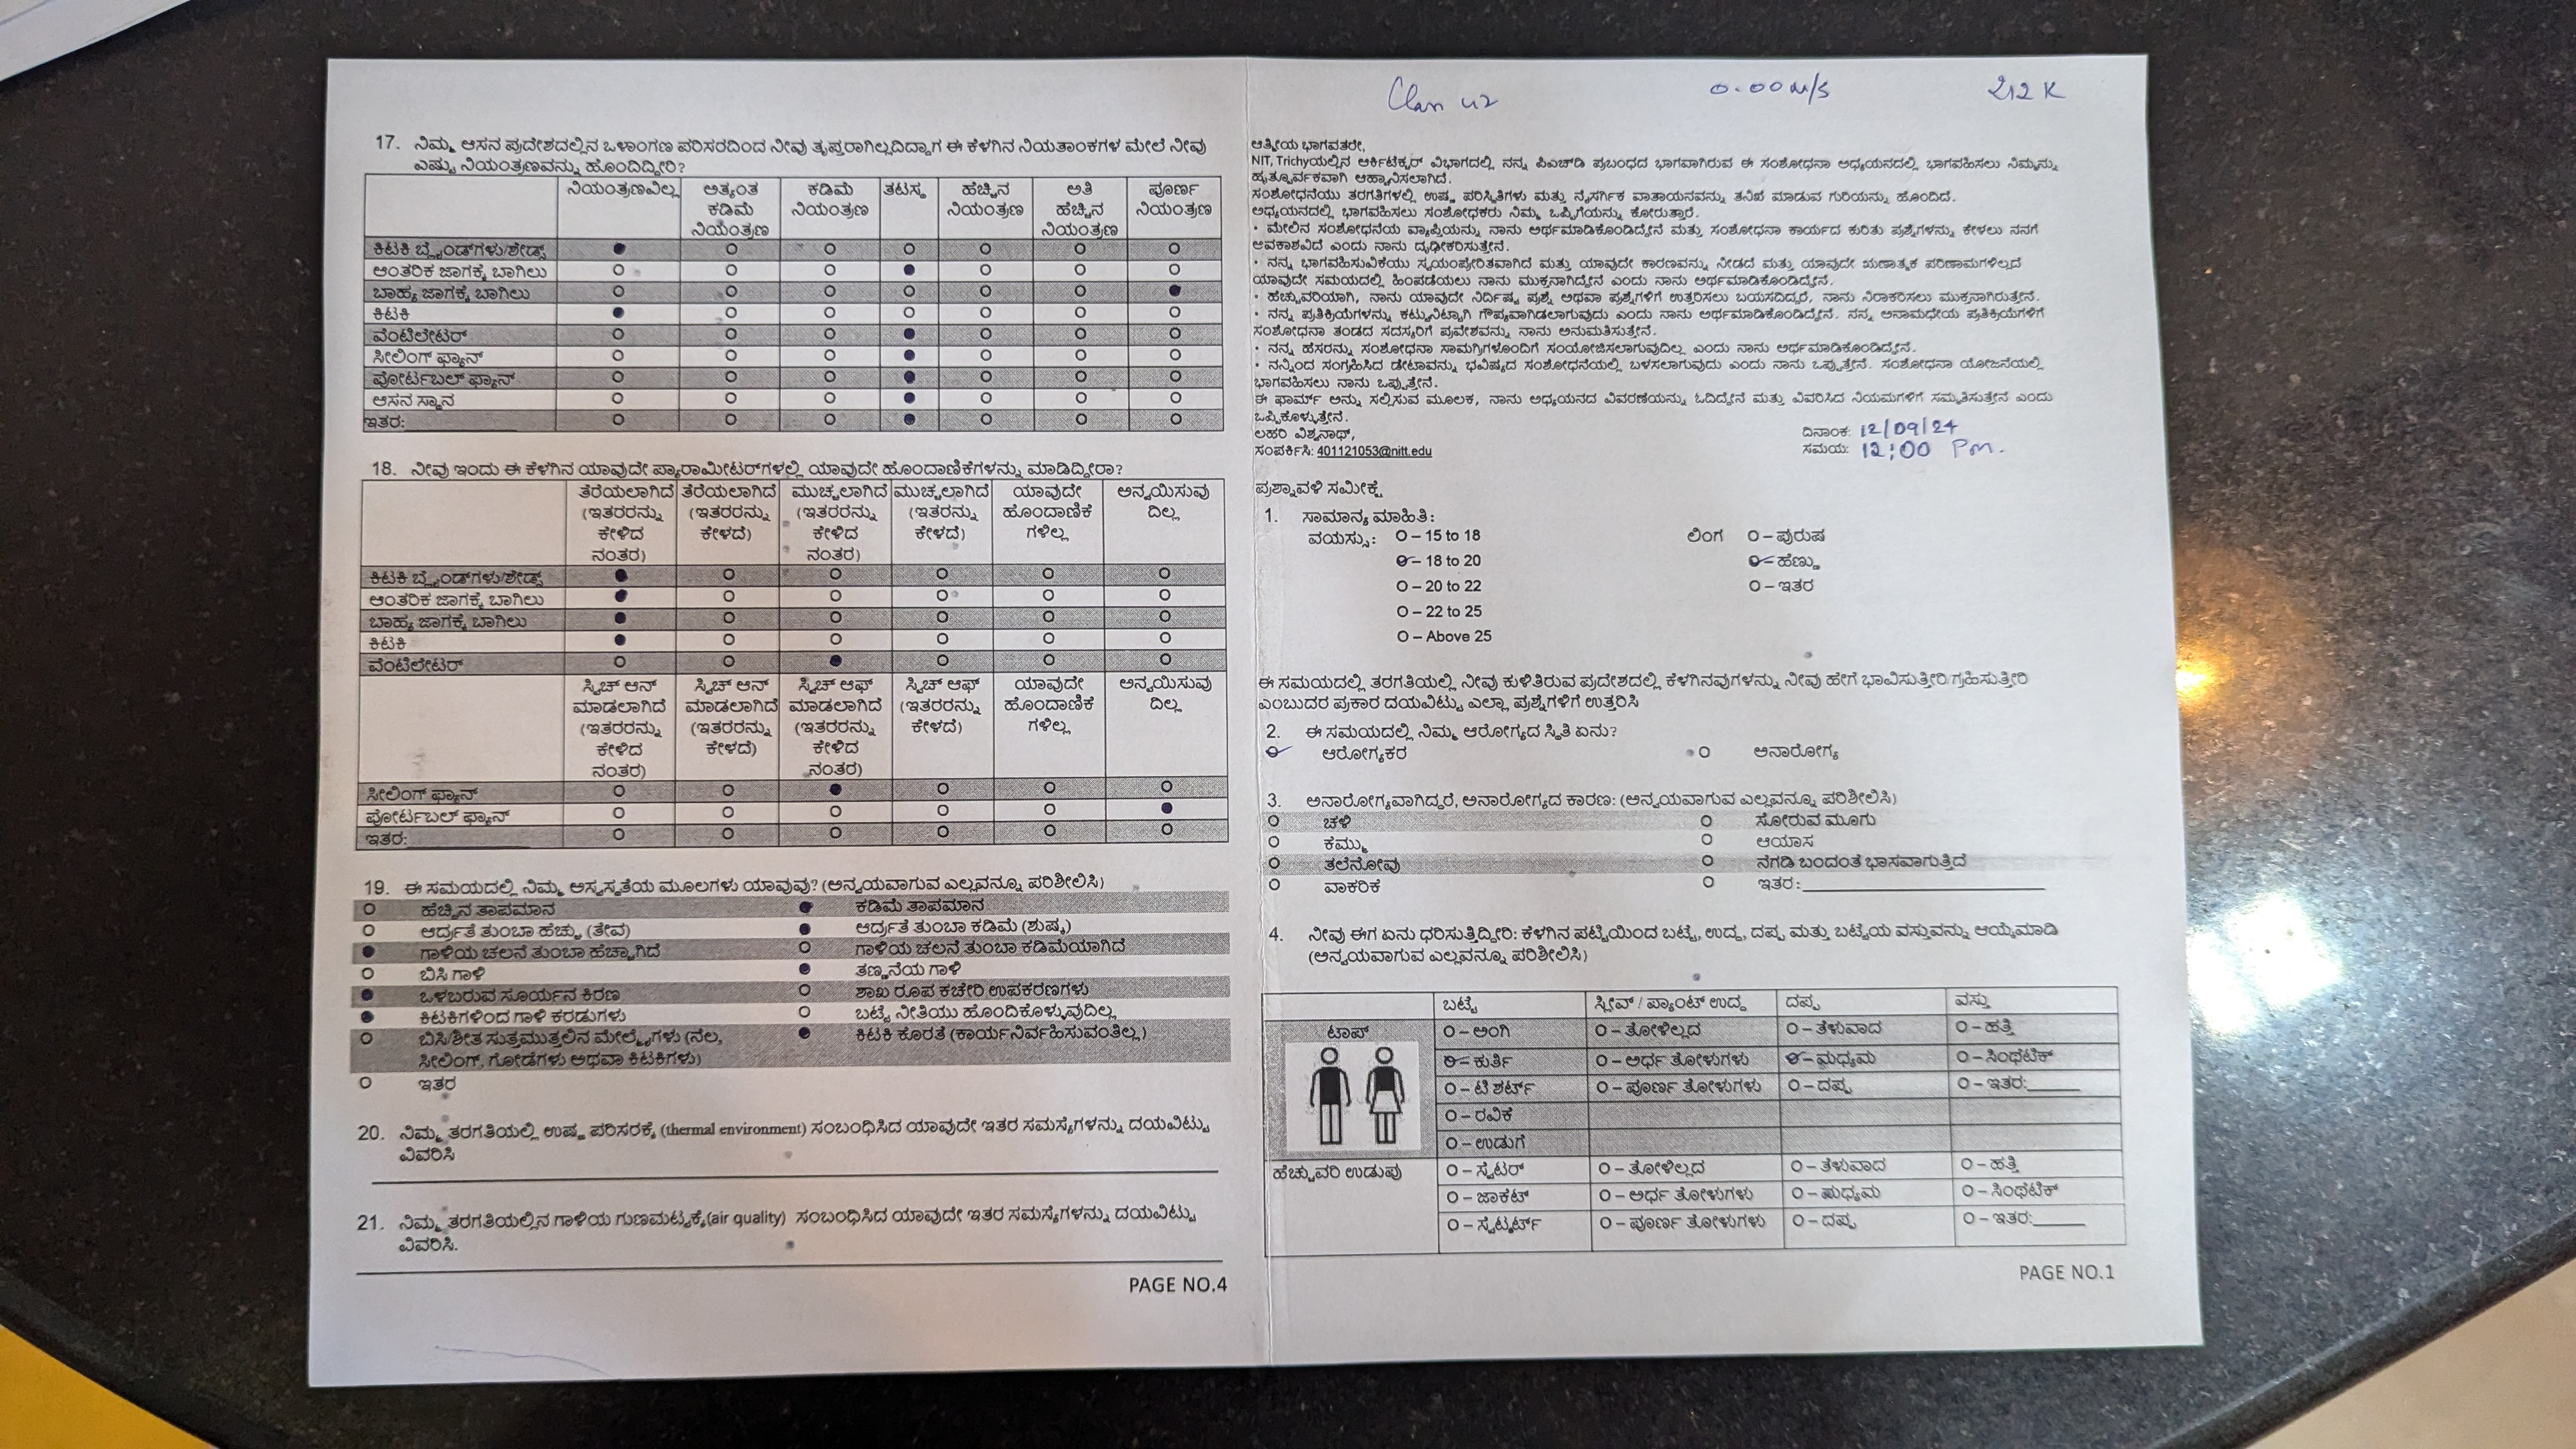 17. ನಿಮ್ಮ ಆಸನ ಪ್ರದೇಶದಲ್ಲಿನ ಒಳಾಂಗಣ ಪರಿಸರದಿಂದ ನೀವು ತೃಪ್ತರಾಗಿಲ್ಲದಿದ್ದಾಗ ಈ ಕೆಳಗಿನ ನಿಯತಾಂಕಗಳ ಮೇಲೆ ನೀವು
ಎಷ್ಟು ನಿಯಂತ್ರಣವನ್ನು ಹೊಂದಿದ್ದೀರಿ?
ನಿಯಂತ್ರಣವಿಲ್ಲ ಅತ್ಯಂತ ಕಡಿಮೆ ನಿಯಂತ್ರಣ ಕಡಿಮೆ ನಿಯಂತ್ರಣ ತಟಸ್ಥ ಹೆಚ್ಚಿನ ನಿಯಂತ್ರಣ ಅತಿ ಹೆಚ್ಚಿನ ನಿಯಂತ್ರಣ ಪೂರ್ಣ ನಿಯಂತ್ರಣ
ಕಿಟಕಿ ಬ್ಲೈಂಡ್‌ಗಳು/ಶೇಡ್ಸ್
ಆಂತರಿಕ ಜಾಗಕ್ಕೆ ಬಾಗಿಲು
ಬಾಹ್ಯ ಜಾಗಕ್ಕೆ ಬಾಗಿಲು
ಕಿಟಕಿ
ವೆಂಟಿಲೇಟರ್
ಸೀಲಿಂಗ್ ಫ್ಯಾನ್
ಪೋರ್ಟಬಲ್ ಫ್ಯಾನ್
ಆಸನ ಸ್ಥಾನ
ಇತರ:
18. ನೀವು ಇಂದು ಈ ಕೆಳಗಿನ ಯಾವುದೇ ಪ್ಯಾರಾಮೀಟರ್‌ಗಳಲ್ಲಿ ಯಾವುದೇ ಹೊಂದಾಣಿಕೆಗಳನ್ನು ಮಾಡಿದ್ದೀರಾ?
ತೆರೆಯಲಾಗಿದೆ (ಇತರರನ್ನು ಕೇಳಿದ ನಂತರ) ತೆರೆಯಲಾಗಿದೆ (ಇತರರನ್ನು ಕೇಳದೆ) ಮುಚ್ಚಲಾಗಿದೆ (ಇತರರನ್ನು ಕೇಳಿದ ನಂತರ) ಮುಚ್ಚಲಾಗಿದೆ (ಇತರರನ್ನು ಕೇಳದೆ) ಯಾವುದೇ ಹೊಂದಾಣಿಕೆ ಗಳಿಲ್ಲ ಅನ್ವಯಿಸುವು ದಿಲ್ಲ
ಕಿಟಕಿ ಬ್ಲೈಂಡ್‌ಗಳು/ಶೇಡ್ಸ್
ಆಂತರಿಕ ಜಾಗಕ್ಕೆ ಬಾಗಿಲು
ಬಾಹ್ಯ ಜಾಗಕ್ಕೆ ಬಾಗಿಲು
ಕಿಟಕಿ
ವೆಂಟಿಲೇಟರ್
ಸ್ವಿಚ್ ಆನ್ ಮಾಡಲಾಗಿದೆ (ಇತರರನ್ನು ಕೇಳಿದ ನಂತರ) ಸ್ವಿಚ್ ಆನ್ ಮಾಡಲಾಗಿದೆ (ಇತರರನ್ನು ಕೇಳದೆ) ಸ್ವಿಚ್ ಆಫ್ ಮಾಡಲಾಗಿದೆ (ಇತರರನ್ನು ಕೇಳಿದ ನಂತರ) ಸ್ವಿಚ್ ಆಫ್ (ಇತರರನ್ನು ಕೇಳದೆ) ಯಾವುದೇ ಹೊಂದಾಣಿಕೆ ಗಳಿಲ್ಲ ಅನ್ವಯಿಸುವು ದಿಲ್ಲ
ಸೀಲಿಂಗ್ ಫ್ಯಾನ್
ಪೋರ್ಟಬಲ್ ಫ್ಯಾನ್
ಇತರ:
19. ಈ ಸಮಯದಲ್ಲಿ ನಿಮ್ಮ ಅಸ್ವಸ್ಥತೆಯ ಮೂಲಗಳು ಯಾವುವು? (ಅನ್ವಯವಾಗುವ ಎಲ್ಲವನ್ನೂ ಪರಿಶೀಲಿಸಿ)
ಹೆಚ್ಚಿನ ತಾಪಮಾನ ಕಡಿಮೆ ತಾಪಮಾನ
ಆರ್ದ್ರತೆ ತುಂಬಾ ಹೆಚ್ಚು (ತೇವ) ಆರ್ದ್ರತೆ ತುಂಬಾ ಕಡಿಮೆ (ಶುಷ್ಕ)
ಗಾಳಿಯ ಚಲನೆ ತುಂಬಾ ಹೆಚ್ಚಾಗಿದೆ ಗಾಳಿಯ ಚಲನೆ ತುಂಬಾ ಕಡಿಮೆಯಾಗಿದೆ
ಬಿಸಿ ಗಾಳಿ ತಣ್ಣನೆಯ ಗಾಳಿ
ಒಳಬರುವ ಸೂರ್ಯನ ಕಿರಣ ಶಾಖ ರೂಪ ಕಚೇರಿ ಉಪಕರಣಗಳು
ಕಿಟಕಿಗಳಿಂದ ಗಾಳಿ ಕರಡುಗಳು ಬಟ್ಟೆ ನೀತಿಯು ಹೊಂದಿಕೊಳ್ಳುವುದಿಲ್ಲ
ಬಿಸಿ/ಶೀತ ಸುತ್ತಮುತ್ತಲಿನ ಮೇಲ್ಮೈಗಳು (ನೆಲ, ಕಿಟಕಿ ಕೊರತೆ (ಕಾರ್ಯನಿರ್ವಹಿಸುವಂತಿಲ್ಲ)
ಸೀಲಿಂಗ್, ಗೋಡೆಗಳು ಅಥವಾ ಕಿಟಕಿಗಳು)
ಇತರ
20. ನಿಮ್ಮ ತರಗತಿಯಲ್ಲಿ ಉಷ್ಣ ಪರಿಸರಕ್ಕೆ (thermal environment) ಸಂಬಂಧಿಸಿದ ಯಾವುದೇ ಇತರ ಸಮಸ್ಯೆಗಳನ್ನು ದಯವಿಟ್ಟು
ವಿವರಿಸಿ
21. ನಿಮ್ಮ ತರಗತಿಯಲ್ಲಿನ ಗಾಳಿಯ ಗುಣಮಟ್ಟಕ್ಕೆ(air quality) ಸಂಬಂಧಿಸಿದ ಯಾವುದೇ ಇತರ ಸಮಸ್ಯೆಗಳನ್ನು ದಯವಿಟ್ಟು
ವಿವರಿಸಿ.
PAGE NO.4
0.00 m/s 212 K
ಆತ್ಮೀಯ ಭಾಗವತರೇ,
NIT, Trichyಯಲ್ಲಿನ ಆರ್ಕಿಟೆಕ್ಚರ್ ವಿಭಾಗದಲ್ಲಿ ನನ್ನ ಪಿಎಚ್‌ಡಿ ಪ್ರಬಂಧದ ಭಾಗವಾಗಿರುವ ಈ ಸಂಶೋಧನಾ ಅಧ್ಯಯನದಲ್ಲಿ ಭಾಗವಹಿಸಲು ನಿಮ್ಮನ್ನು
ಹೃತ್ಪೂರ್ವಕವಾಗಿ ಆಹ್ವಾನಿಸಲಾಗಿದೆ.
ಸಂಶೋಧನೆಯು ತರಗತಿಗಳಲ್ಲಿ ಉಷ್ಣ ಪರಿಸ್ಥಿತಿಗಳು ಮತ್ತು ನೈಸರ್ಗಿಕ ವಾತಾಯನವನ್ನು ತನಿಖೆ ಮಾಡುವ ಗುರಿಯನ್ನು ಹೊಂದಿದೆ.
ಅಧ್ಯಯನದಲ್ಲಿ ಭಾಗವಹಿಸಲು ಸಂಶೋಧಕರು ನಿಮ್ಮ ಒಪ್ಪಿಗೆಯನ್ನು ಕೋರುತ್ತಾರೆ.
• ಮೇಲಿನ ಸಂಶೋಧನೆಯ ವ್ಯಾಪ್ತಿಯನ್ನು ನಾನು ಅರ್ಥಮಾಡಿಕೊಂಡಿದ್ದೇನೆ ಮತ್ತು ಸಂಶೋಧನಾ ಕಾರ್ಯದ ಕುರಿತು ಪ್ರಶ್ನೆಗಳನ್ನು ಕೇಳಲು ನನಗೆ
ಅವಕಾಶವಿದೆ ಎಂದು ನಾನು ದೃಢೀಕರಿಸುತ್ತೇನೆ.
• ನನ್ನ ಭಾಗವಹಿಸುವಿಕೆಯು ಸ್ವಯಂಪ್ರೇರಿತವಾಗಿದೆ ಮತ್ತು ಯಾವುದೇ ಕಾರಣವನ್ನು ನೀಡದೆ ಮತ್ತು ಯಾವುದೇ ಋಣಾತ್ಮಕ ಪರಿಣಾಮಗಳಿಲ್ಲದೆ
ಯಾವುದೇ ಸಮಯದಲ್ಲಿ ಹಿಂಪಡೆಯಲು ನಾನು ಮುಕ್ತನಾಗಿದ್ದೇನೆ ಎಂದು ನಾನು ಅರ್ಥಮಾಡಿಕೊಂಡಿದ್ದೇನೆ.
• ಹೆಚ್ಚುವರಿಯಾಗಿ, ನಾನು ಯಾವುದೇ ನಿರ್ದಿಷ್ಟ ಪ್ರಶ್ನೆ ಅಥವಾ ಪ್ರಶ್ನೆಗಳಿಗೆ ಉತ್ತರಿಸಲು ಬಯಸದಿದ್ದರೆ, ನಾನು ನಿರಾಕರಿಸಲು ಮುಕ್ತನಾಗಿರುತ್ತೇನೆ.
• ನನ್ನ ಪ್ರತಿಕ್ರಿಯೆಗಳನ್ನು ಕಟ್ಟುನಿಟ್ಟಾಗಿ ಗೌಪ್ಯವಾಗಿಡಲಾಗುವುದು ಎಂದು ನಾನು ಅರ್ಥಮಾಡಿಕೊಂಡಿದ್ದೇನೆ. ನನ್ನ ಅನಾಮಧೇಯ ಪ್ರತಿಕ್ರಿಯೆಗಳಿಗೆ
ಸಂಶೋಧನಾ ತಂಡದ ಸದಸ್ಯರಿಗೆ ಪ್ರವೇಶವನ್ನು ನಾನು ಅನುಮತಿಸುತ್ತೇನೆ.
• ನನ್ನ ಹೆಸರನ್ನು ಸಂಶೋಧನಾ ಸಾಮಗ್ರಿಗಳೊಂದಿಗೆ ಸಂಯೋಜಿಸಲಾಗುವುದಿಲ್ಲ ಎಂದು ನಾನು ಅರ್ಥಮಾಡಿಕೊಂಡಿದ್ದೇನೆ.
• ನನ್ನಿಂದ ಸಂಗ್ರಹಿಸಿದ ಡೇಟಾವನ್ನು ಭವಿಷ್ಯದ ಸಂಶೋಧನೆಯಲ್ಲಿ ಬಳಸಲಾಗುವುದು ಎಂದು ನಾನು ಒಪ್ಪುತ್ತೇನೆ. ಸಂಶೋಧನಾ ಯೋಜನೆಯಲ್ಲಿ
ಭಾಗವಹಿಸಲು ನಾನು ಒಪ್ಪುತ್ತೇನೆ.
ಈ ಫಾರ್ಮ್ ಅನ್ನು ಸಲ್ಲಿಸುವ ಮೂಲಕ, ನಾನು ಅಧ್ಯಯನದ ವಿವರಣೆಯನ್ನು ಓದಿದ್ದೇನೆ ಮತ್ತು ವಿವರಿಸಿದ ನಿಯಮಗಳಿಗೆ ಸಮ್ಮತಿಸುತ್ತೇನೆ ಎಂದು
ಒಪ್ಪಿಕೊಳ್ಳುತ್ತೇನೆ.
ಲಹರಿ ವಿಶ್ವನಾಥ್, ದಿನಾಂಕ: 12/09/24
ಸಂಪರ್ಕಿಸಿ: 401121053@nitt.edu ಸಮಯ: 12:00 Pm.
ಪ್ರಶ್ನಾವಳಿ ಸಮೀಕ್ಷೆ
1. ಸಾಮಾನ್ಯ ಮಾಹಿತಿ:
ವಯಸ್ಸು: O – 15 to 18 ಲಿಂಗ O – ಪುರುಷ
O – 18 to 20 O – ಹೆಣ್ಣು
O – 20 to 22 O – ಇತರ
O – 22 to 25
O – Above 25
ಈ ಸಮಯದಲ್ಲಿ ತರಗತಿಯಲ್ಲಿ ನೀವು ಕುಳಿತಿರುವ ಪ್ರದೇಶದಲ್ಲಿ ಕೆಳಗಿನವುಗಳನ್ನು ನೀವು ಹೇಗೆ ಭಾವಿಸುತ್ತೀರಿ/ಗ್ರಹಿಸುತ್ತೀರಿ
ಎಂಬುದರ ಪ್ರಕಾರ ದಯವಿಟ್ಟು ಎಲ್ಲಾ ಪ್ರಶ್ನೆಗಳಿಗೆ ಉತ್ತರಿಸಿ
2. ಈ ಸಮಯದಲ್ಲಿ ನಿಮ್ಮ ಆರೋಗ್ಯದ ಸ್ಥಿತಿ ಏನು?
ಆರೋಗ್ಯಕರ O ಅನಾರೋಗ್ಯ
3. ಅನಾರೋಗ್ಯವಾಗಿದ್ದರೆ, ಅನಾರೋಗ್ಯದ ಕಾರಣ: (ಅನ್ವಯವಾಗುವ ಎಲ್ಲವನ್ನೂ ಪರಿಶೀಲಿಸಿ)
O ಚಳಿ O ಸೋರುವ ಮೂಗು
O ಕೆಮ್ಮು O ಆಯಾಸ
O ತಲೆನೋವು O ನೆಗಡಿ ಬಂದಂತೆ ಭಾಸವಾಗುತ್ತಿದೆ
O ವಾಕರಿಕೆ O ಇತರ:
4. ನೀವು ಈಗ ಏನು ಧರಿಸುತ್ತಿದ್ದೀರಿ: ಕೆಳಗಿನ ಪಟ್ಟಿಯಿಂದ ಬಟ್ಟೆ, ಉದ್ದ, ದಪ್ಪ ಮತ್ತು ಬಟ್ಟೆಯ ವಸ್ತುವನ್ನು ಆಯ್ಕೆಮಾಡಿ
(ಅನ್ವಯವಾಗುವ ಎಲ್ಲವನ್ನೂ ಪರಿಶೀಲಿಸಿ)
ಬಟ್ಟೆ ಸ್ಲೀವ್ / ಪ್ಯಾಂಟ್ ಉದ್ದ ದಪ್ಪ ವಸ್ತು
ಟಾಪ್ O – ಅಂಗಿ O – ತೋಳಿಲ್ಲದ O – ತೆಳುವಾದ O – ಹತ್ತಿ
O – ಕುರ್ತಿ O – ಅರ್ಧ ತೋಳುಗಳು O – ಮಧ್ಯಮ O – ಸಿಂಥೆಟಿಕ್
O – ಟಿ ಶರ್ಟ್ O – ಪೂರ್ಣ ತೋಳುಗಳು O – ದಪ್ಪ O – ಇತರ:
O – ರವಿಕೆ
O – ಉಡುಗೆ
ಹೆಚ್ಚುವರಿ ಉಡುಪು O – ಸ್ವೆಟರ್ O – ತೋಳಿಲ್ಲದ O – ತೆಳುವಾದ O – ಹತ್ತಿ
O – ಜಾಕೆಟ್ O – ಅರ್ಧ ತೋಳುಗಳು O – ಮಧ್ಯಮ O – ಸಿಂಥೆಟಿಕ್
O – ಸ್ವೆಟ್ಶರ್ಟ್ O – ಪೂರ್ಣ ತೋಳುಗಳು O – ದಪ್ಪ O – ಇತರ:
PAGE NO.1